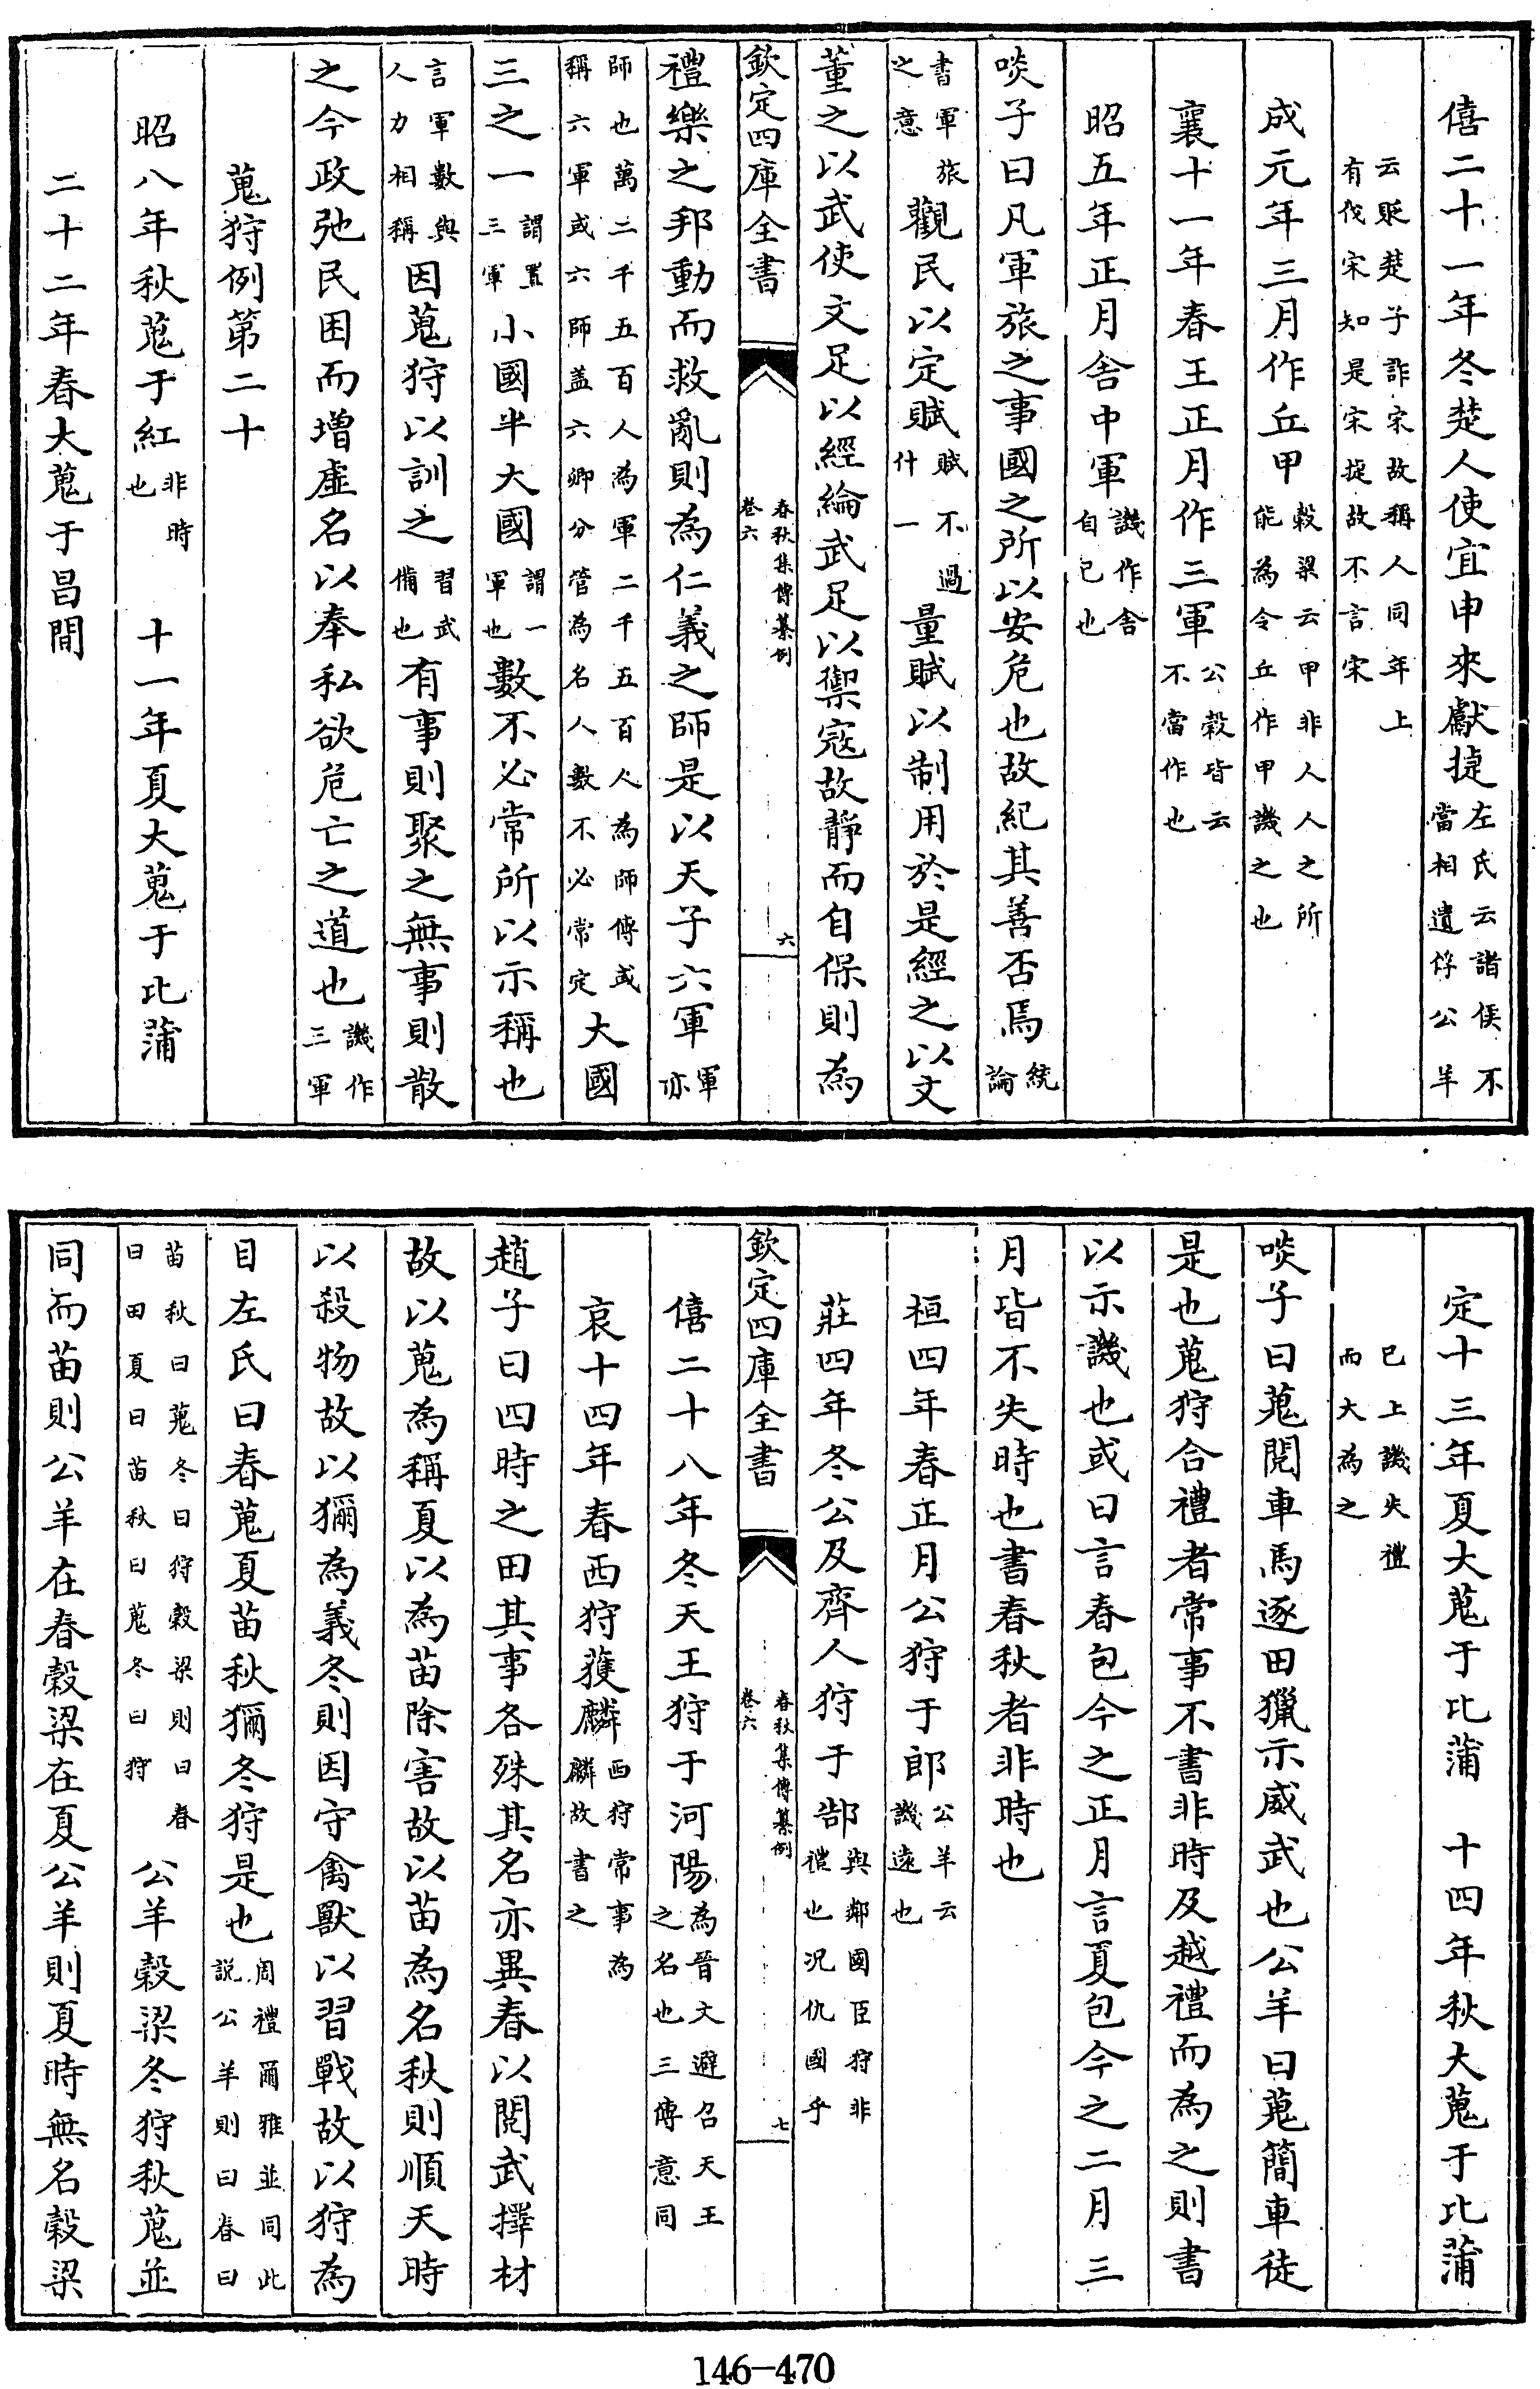 僖二十一年冬楚人使宜申來獻捷左氏云諸侯不當相遺俘公羊
云貶楚子詐宋故稱人同年上有伐宋知是宋捉故不言宋
成元年三月作丘甲穀梁云甲非人人之所能為令丘作甲譏之也
襄十一年春王正月作三軍公穀皆云不當作也
昭五年正月舍中軍譏作舍自已也
啖子曰凡軍旅之事國之所以安危也故紀其善否焉統論
書軍旅之意觀民以定賦賦不過什一量賦以制用於是經之以文
董之以武使文足以經綸武足以禦寇故靜而自保則為
欽定四庫全書
春秋集傳纂例
卷六
六
禮樂之邦動而救亂則為仁義之師是以天子六軍軍亦
師也萬二千五百人為軍二千五百人為師傳或稱六軍或六師盖六卿分管為名人數不必常定大國
三之一謂置三軍小國半大國謂一軍也數不必常所以示稱也
言軍數與人力相稱因蒐狩以訓之習武備也有事則聚之無事則散
之今政弛民困而增虛名以奉私欲危亡之道也譏作三軍
蒐狩例第二十
昭八年秋蒐于紅非時也 十一年夏大蒐于比蒲
二十二年春大蒐于昌間
定十三年夏大蒐于比蒲 十四年秋大蒐于比蒲
已上譏失禮而大為之
啖子曰蒐閱車馬逐田獵示威武也公羊曰蒐簡車徒
是也蒐狩合禮者常事不書非時及越禮而為之則書
以示譏也或曰言春包今之正月言夏包今之二月三
月皆不失時也書春秋者非時也
桓四年春正月公狩于郎公羊云譏遠也
莊四年冬公及齊人狩于郜與鄰國臣狩非禮也况仇國乎
欽定四庫全書
春秋集傳纂例
卷六
七
僖二十八年冬天王狩于河陽為晉文避召天王之名也三傳意同
哀十四年春西狩獲麟西狩常事為麟故書之
趙子曰四時之田其事各殊其名亦異春以閱武擇材
故以蒐為稱夏以為苗除害故以苗為名秋則順天時
以殺物故以獮為義冬則因守禽獸以習戰故以狩為
目左氏曰春蒐夏苗秋獮冬狩是也周禮爾雅並同此説公羊則曰春曰
苗秋曰蒐冬曰狩穀梁則曰春曰田夏曰苗秋曰蒐冬曰狩 公羊穀梁冬狩秋蒐並
同而苗則公羊在春穀梁在夏公羊則夏時無名穀梁
146-470